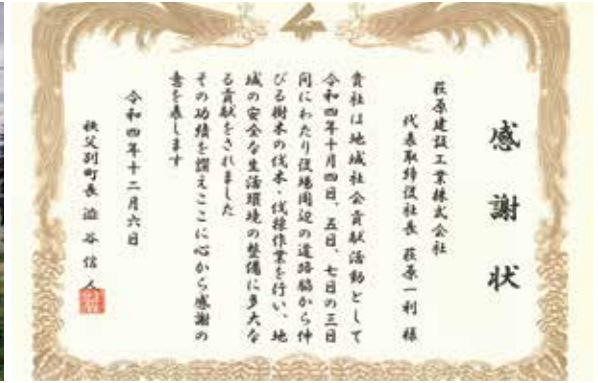 感謝状
荻原建設工業株式会社
代表取締役社長 荻原一利 様
貴社は地域社会貢献活動として
令和四年十月四日、五日、七日の三日
間にわたり役場周辺の道路脇から伸
びる樹木の伐木・伐採作業を行い、地
域の安全な生活環境の整備に多大な
る貢献をされました
その功績を讃えここに心から感謝の
意を表します
令和四年十二月六日
秩父別町長 澁谷信人